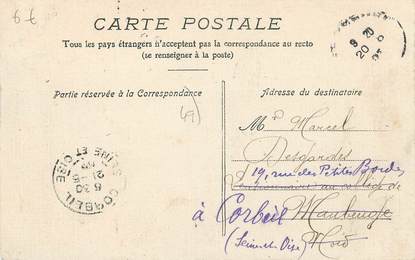 6€
CARTE POSTALE
Tous les pays étrangers n'acceptent pas la correspondance au recto
(se renseigner à la poste)
Partie réservée à la Correspondance
Adresse du destinataire
49)
9 20
20
Mr Marcel
Desgardes
19, rue des Petites Bordes
au collège de
à Corbeil Maubeuge
(Seine et Oise) Nord
CORBEIL
6 30
21
SEINE ET OISE